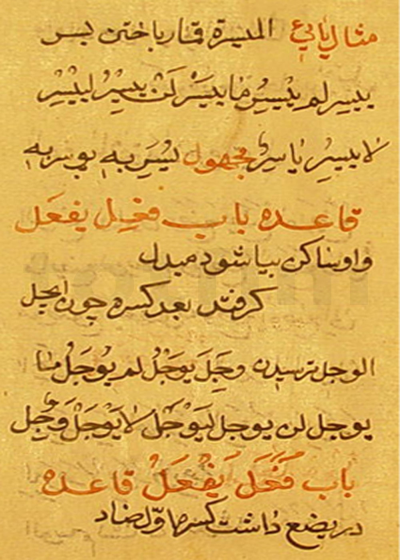 مثال یائی المیسرة قمار باختن یسر
ییسر لم ییسر ما ییسر لن ییسر لییسر
لا ییسر یاسر مجهول یسر به یوسر به
قاعده باب فعل یفعل
واو ساکن بیا شود مبدل
کرفتد بعد کسره چون ایجل
الوجل ترسیدن وجل یوجل لم یوجل ما
یوجل لن یوجل لیوجل لا یوجل وجل
باب فعل یفعل قاعده
در یضع داشت کسره اول ضاد